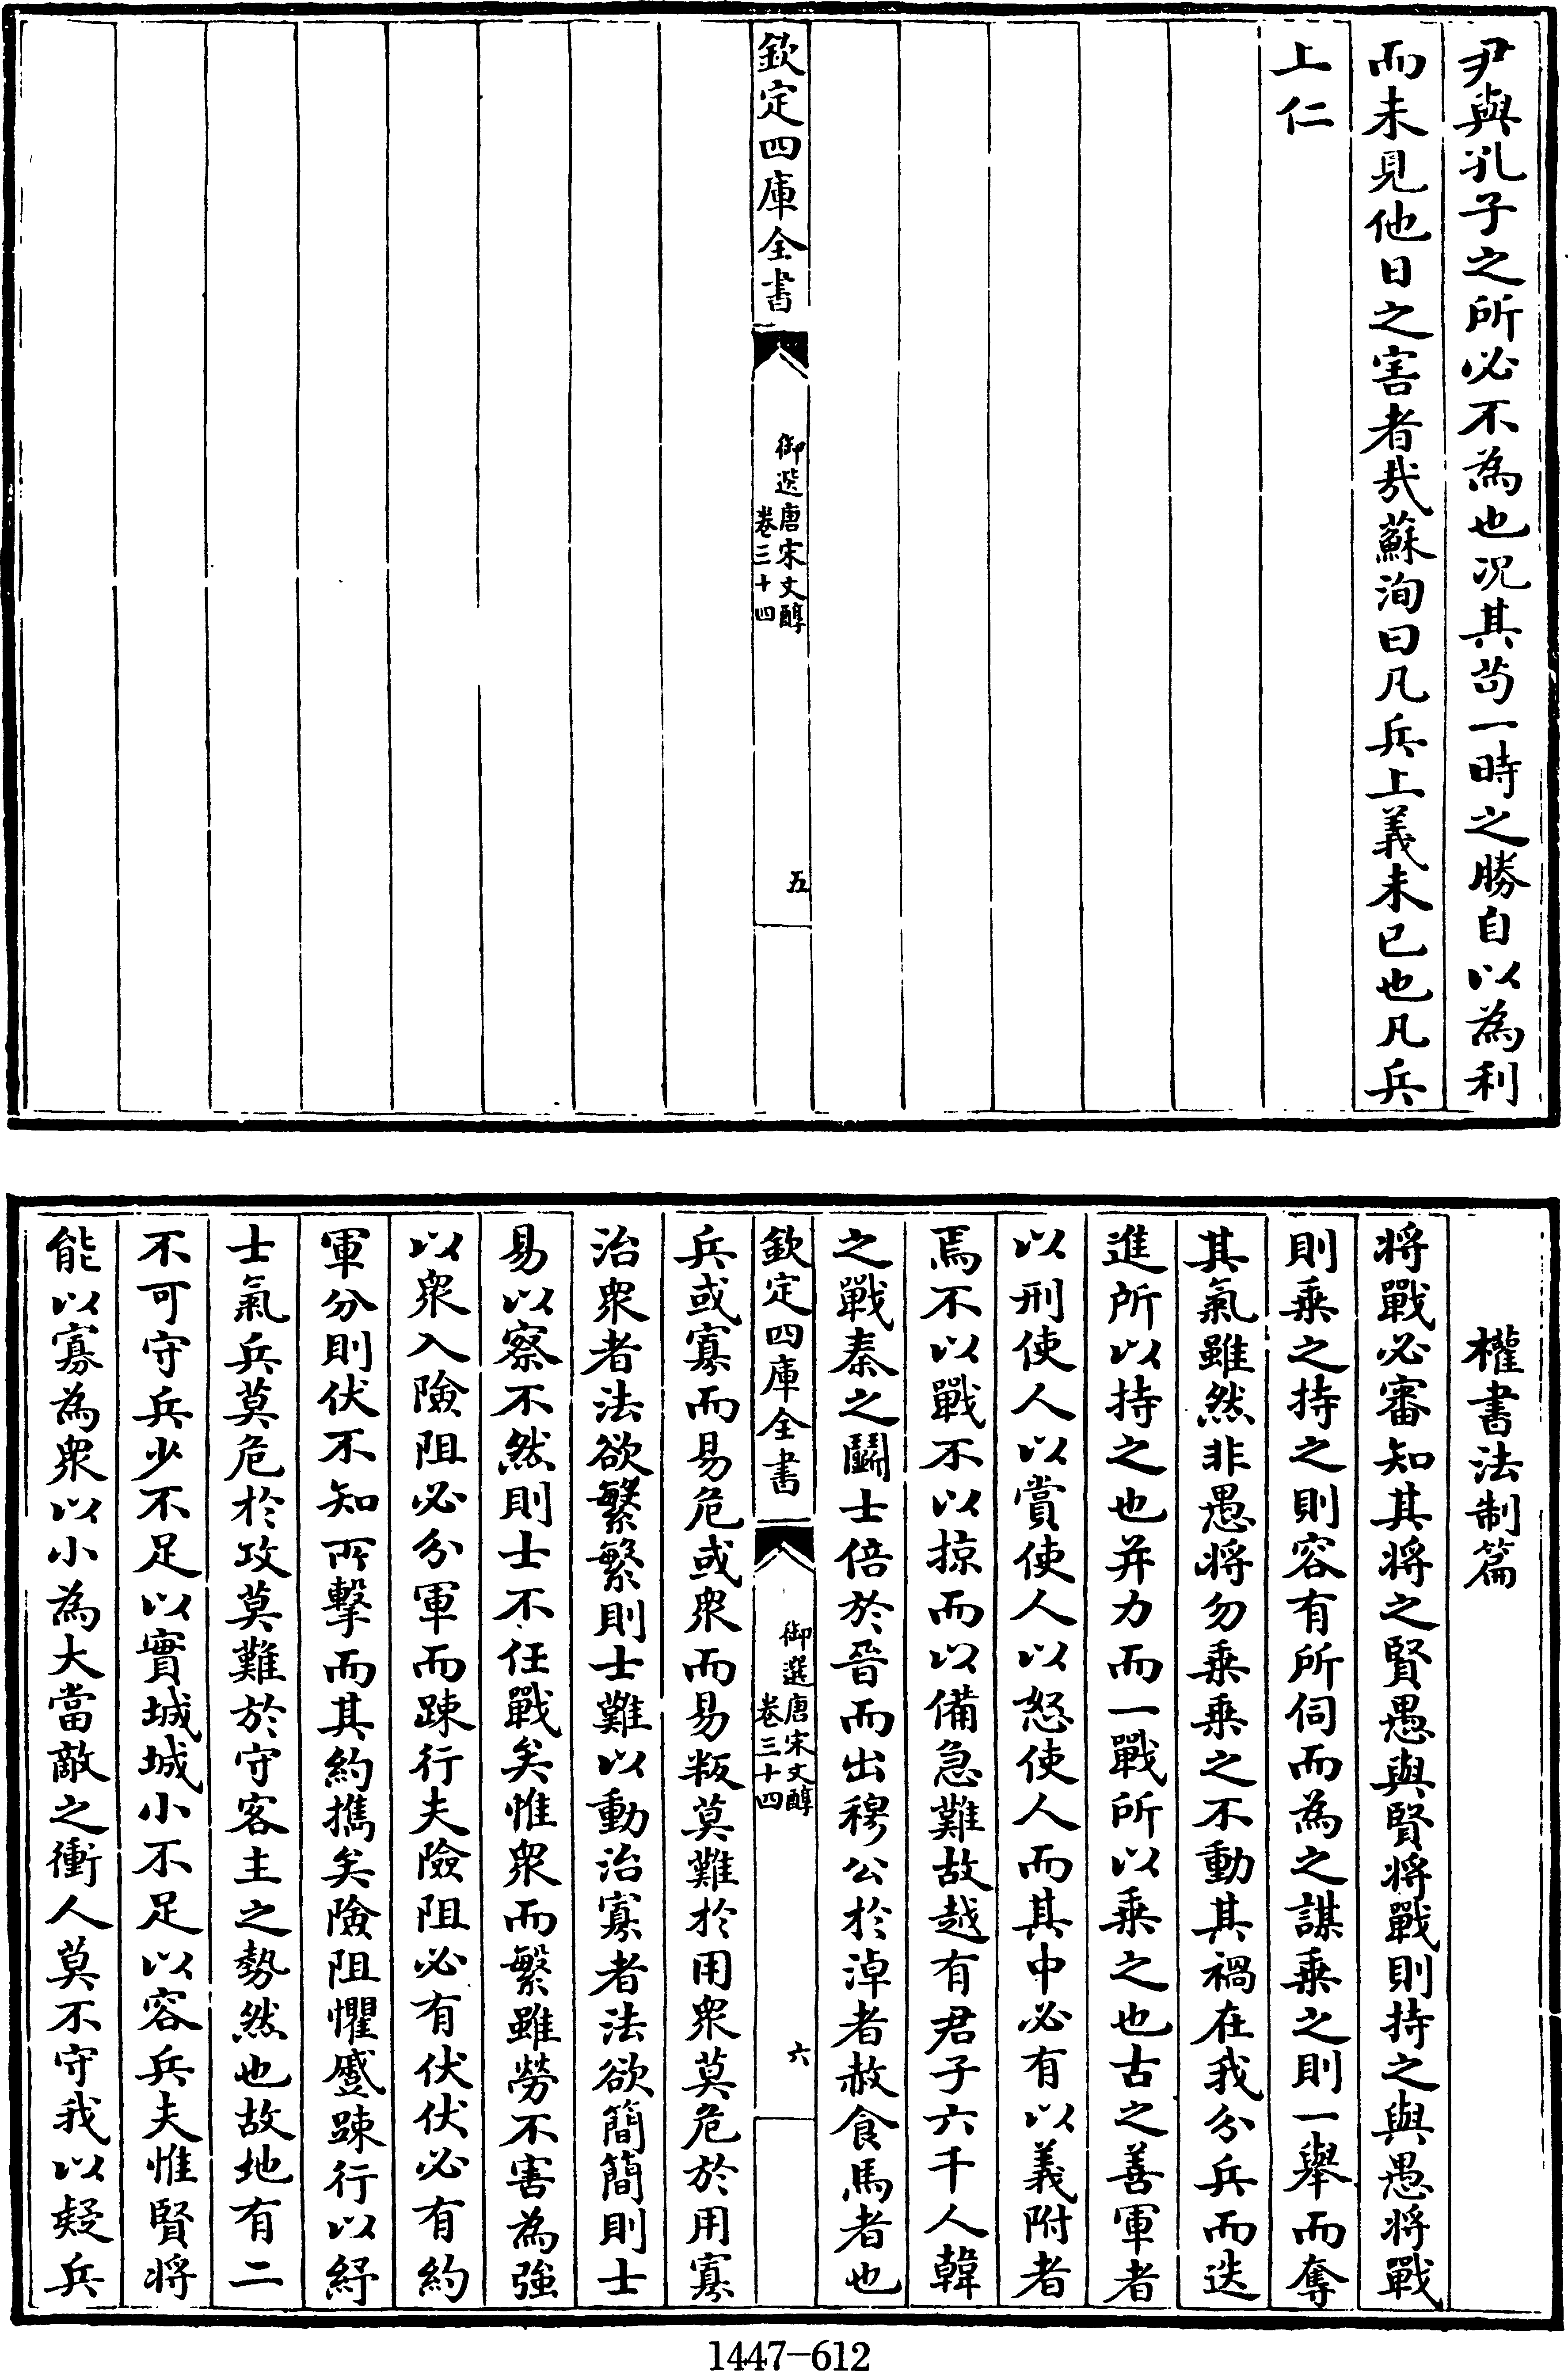 尹與孔子之所必不為也况其苟一時之勝自以為利
而未見他日之害者哉蘇洵曰凡兵上義未已也凡兵
上仁
欽定四庫全書
御選唐宋文醇
卷三十四
五
權書法制篇
將戰必審知其將之賢愚與賢將戰則持之與愚將戰
則乗之持之則容有所伺而為之謀乗之則一舉而奪
其氣雖然非愚將勿乗乗之不動其禍在我分兵而迭
進所以持之也并力而一戰所以乗之也古之善軍者
以刑使人以賞使人以怒使人而其中必有以義附者
焉不以戰不以掠而以備急難故越有君子六千人韓
之戰秦之鬭士倍於晉而出穆公於淖者赦食馬者也
欽定四庫全書
御選唐宋文醇
卷三十四
六
兵或寡而易危或衆而易叛莫難於用衆莫危於用寡
治衆者法欲繁繁則士難以動治寡者法欲簡簡則士
易以察不然則士不任戰矣惟衆而繁雖勞不害為強
以衆入險阻必分軍而踈行夫險阻必有伏伏必有約
軍分則伏不知所擊而其約攜矣險阻懼蹙踈行以紓
士氣兵莫危於攻莫難於守客主之勢然也故地有二
不可守兵少不足以實城城小不足以容兵夫惟賢將
能以寡為衆以小為大當敵之衝人莫不守我以疑兵
1447-612